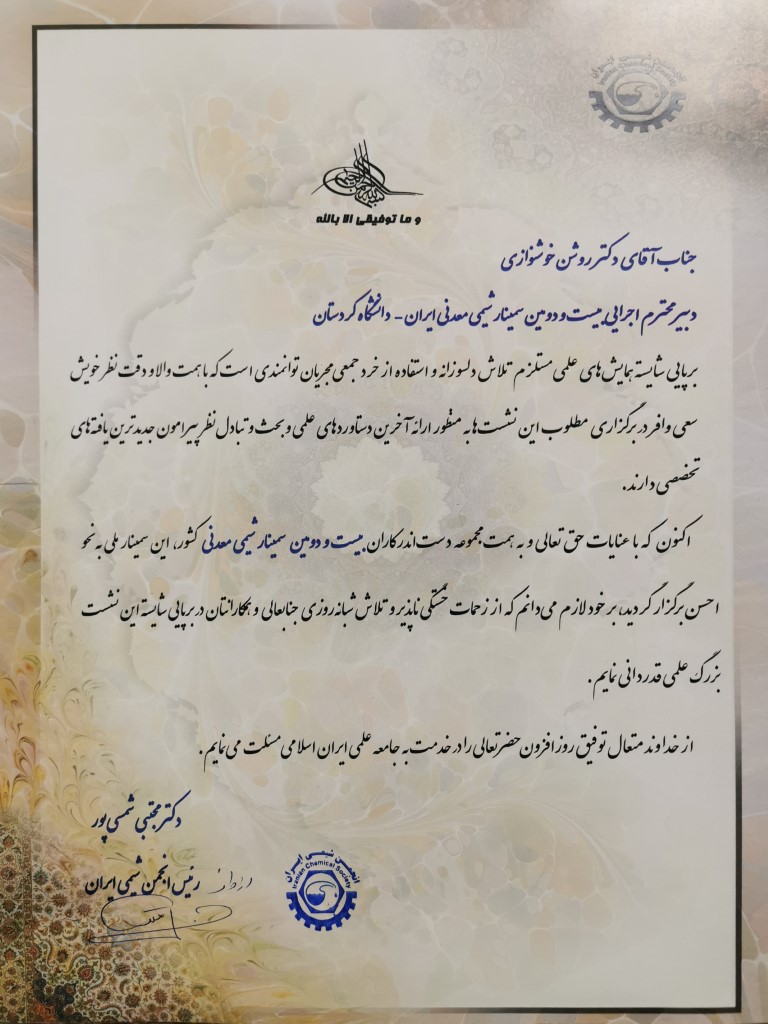 انجمن شیمی ایران
Iranian Chemical Society
و ما توفیقی الا بالله
جناب آقای دکتر روشن خوشنوازی
دبیر محترم اجرایی بیست و دومین سمینار شیمی معدنی ایران - دانشگاه کردستان
برپایی شایسته همایش‌های علمی مستلزم تلاش دلسوزانه و استفاده از خرد جمعی مجریان توانمندی است که با همت والا و دقت نظر خویش
سعی وافر در برگزاری مطلوب این نشست‌ها به منظور ارائه آخرین دستاوردهای علمی و بحث و تبادل نظر پیرامون جدیدترین یافته‌های
تخصصی دارند.
اکنون که با عنایات حق تعالی و به همت مجموعه دست‌اندرکاران بیست و دومین سمینار شیمی معدنی کشور، این سمینار ملی به نحو
احسن برگزار گردید، بر خود لازم می‌دانم که از زحمات خستگی ناپذیر و تلاش شبانه‌روزی جنابعالی و همکارانتان در برپایی شایسته این نشست
بزرگ علمی قدردانی نمایم.
از خداوند متعال توفیق روز افزون حضرتعالی را در خدمت به جامعه علمی ایران اسلامی مسئلت می‌نمایم.
دکتر مجتبی شمسی‌پور
رئیس انجمن شیمی ایران
انجمن شیمی ایران
Iranian Chemical Society